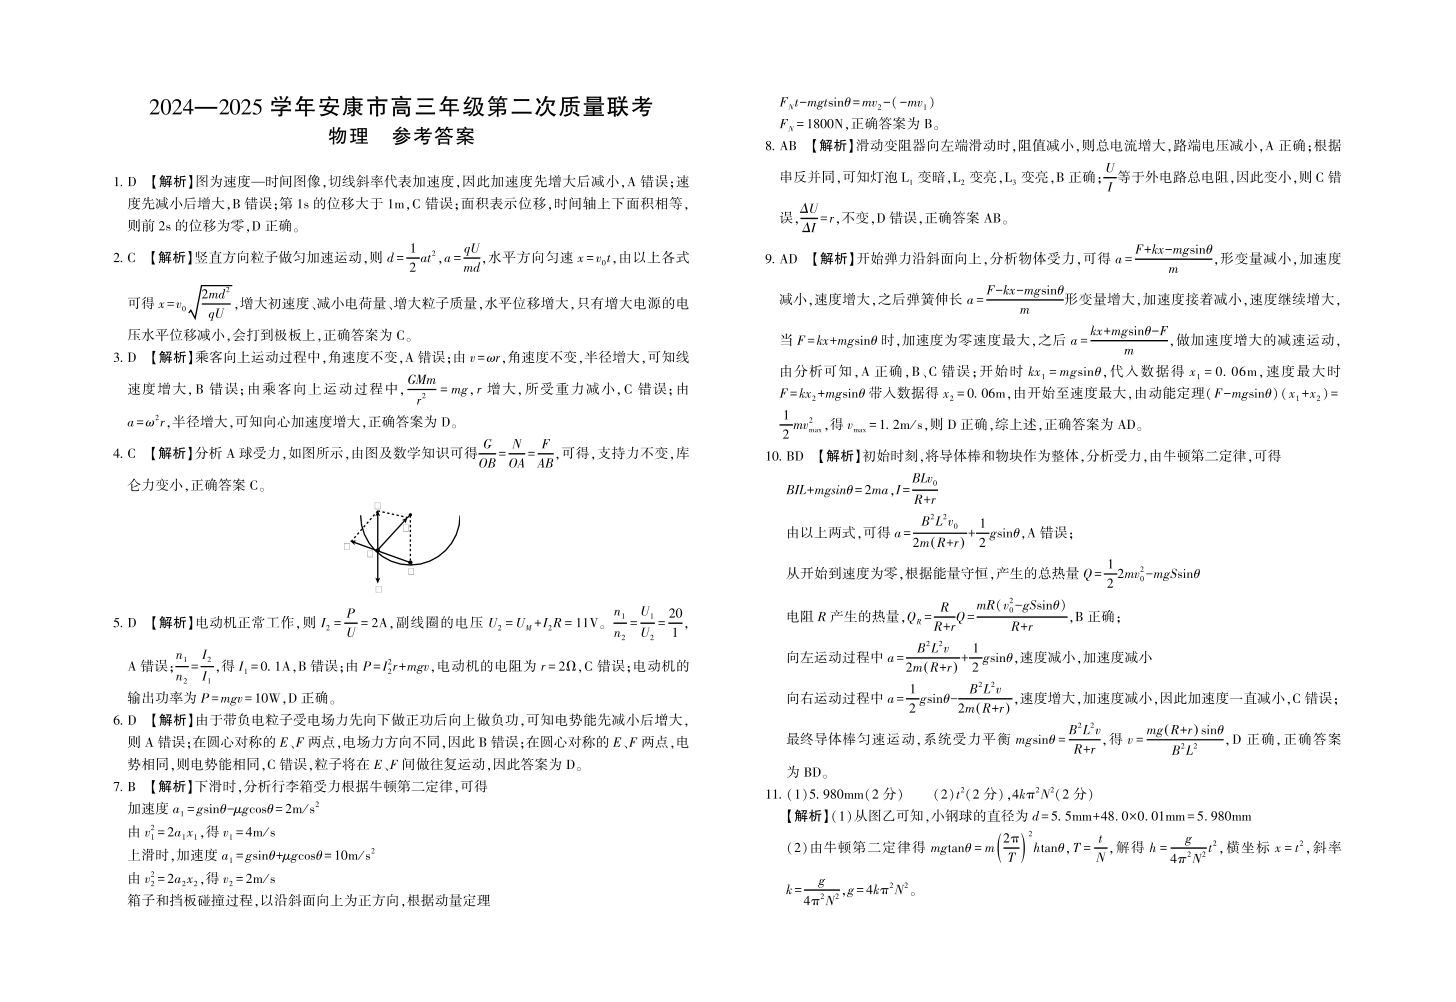 2024—2025 学年安康市高三年级第二次质量联考
物理　参考答案
1. D 【解析】图为速度—时间图像,切线斜率代表加速度,因此加速度先增大后减小,A 错误;速
度先减小后增大,B 错误;第 1s 的位移大于 1m,C 错误;面积表示位移,时间轴上下面积相等,
则前 2s 的位移为零,D 正确。
2. C 【解析】竖直方向粒子做匀加速运动,则 d=1/2at²,a=qU/md,水平方向匀速 x=v₀t,由以上各式
可得 x=v₀√(2md²/qU),增大初速度、减小电荷量、增大粒子质量,水平位移增大,只有增大电源的电
压水平位移减小,会打到极板上,正确答案为 C。
3. D 【解析】乘客向上运动过程中,角速度不变,A 错误;由 v=ωr,角速度不变,半径增大,可知线
速度增大, B 错误;由乘客向上运动过程中,GMm/r²=mg,r 增大,所受重力减小,C 错误;由
a=ω²r,半径增大,可知向心加速度增大,正确答案为 D。
4. C 【解析】分析 A 球受力,如图所示,由图及数学知识可得G/OB=N/OA=F/AB,可得,支持力不变,库
仑力变小,正确答案 C。
5. D 【解析】电动机正常工作,则 I₂=P/U=2A,副线圈的电压 U₂=U_M+I₂R=11V。n₁/n₂=U₁/U₂=20/1,
A 错误;n₁/n₂=I₂/I₁,得 I₁=0. 1A,B 错误;由 P=I₂²r+mgv,电动机的电阻为 r=2Ω,C 错误;电动机的
输出功率为 P=mgv=10W,D 正确。
6. D 【解析】由于带负电粒子受电场力先向下做正功后向上做负功,可知电势能先减小后增大,
则 A 错误;在圆心对称的 E、F 两点,电场力方向不同,因此 B 错误;在圆心对称的 E、F 两点,电
势相同,则电势能相同,C 错误,粒子将在 E、F 间做往复运动,因此答案为 D。
7. B 【解析】下滑时,分析行李箱受力根据牛顿第二定律,可得
加速度 a₁=gsinθ-μgcosθ=2m/s²
由 v₁²=2a₁x₁,得 v₁=4m/s
上滑时,加速度 a₁=gsinθ+μgcosθ=10m/s²
由 v₂²=2a₂x₂,得 v₂=2m/s
箱子和挡板碰撞过程,以沿斜面向上为正方向,根据动量定理
F_Nt-mgtsinθ=mv₂-(-mv₁)
F_N=1800N,正确答案为 B。
8. AB 【解析】滑动变阻器向左端滑动时,阻值减小,则总电流增大,路端电压减小,A 正确;根据
串反并同,可知灯泡 L₁ 变暗,L₂ 变亮,L₃ 变亮,B 正确;U/I等于外电路总电阻,因此变小,则 C 错
误,ΔU/ΔI=r,不变,D 错误,正确答案 AB。
9. AD 【解析】开始弹力沿斜面向上,分析物体受力,可得 a=(F+kx-mgsinθ)/m,形变量减小,加速度
减小,速度增大,之后弹簧伸长 a=(F-kx-mgsinθ)/m形变量增大,加速度接着减小,速度继续增大,
当 F=kx+mgsinθ 时,加速度为零速度最大,之后 a=(kx+mgsinθ-F)/m,做加速度增大的减速运动,
由分析可知,A 正确,B、C 错误;开始时 kx₁=mgsinθ,代入数据得 x₁=0. 06m,速度最大时
F=kx₂+mgsinθ 带入数据得 x₂=0. 06m,由开始至速度最大,由动能定理(F-mgsinθ)(x₁+x₂)=
1/2mv²max,得 vmax=1. 2m/s,则 D 正确,综上述,正确答案为 AD。
10. BD 【解析】初始时刻,将导体棒和物块作为整体,分析受力,由牛顿第二定律,可得
BIL+mgsinθ=2ma,I=BLv₀/(R+r)
由以上两式,可得 a=B²L²v₀/2m(R+r)+1/2gsinθ,A 错误;
从开始到速度为零,根据能量守恒,产生的总热量 Q=1/2 2mv₀²-mgSsinθ
电阻 R 产生的热量,Q_R=R/(R+r)Q=mR(v₀²-gSsinθ)/(R+r),B 正确;
向左运动过程中 a=B²L²v/2m(R+r)+1/2gsinθ,速度减小,加速度减小
向右运动过程中 a=1/2gsinθ-B²L²v/2m(R+r),速度增大,加速度减小,因此加速度一直减小,C 错误;
最终导体棒匀速运动,系统受力平衡 mgsinθ=B²L²v/(R+r),得 v=mg(R+r)sinθ/B²L²,D 正确,正确答案
为 BD。
11. (1)5. 980mm(2 分)　(2)t²(2 分),4kπ²N²(2 分)
【解析】(1)从图乙可知,小钢球的直径为 d=5. 5mm+48. 0×0. 01mm=5. 980mm
(2)由牛顿第二定律得 mgtanθ=m(2π/T)²htanθ,T=t/N,解得 h=g/4π²N² t²,横坐标 x=t²,斜率
k=g/4π²N²,g=4kπ²N²。